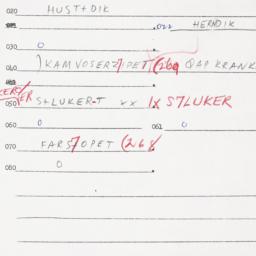 020 HUST+DIK
.022 HERNDIK
030 0
040 )KAMVOSERZ7PET (26a QAP KRANK
050 S+LUKER-T xx 1x S7LUKER
060 0 061 0
070 FARS7OPET (268
0